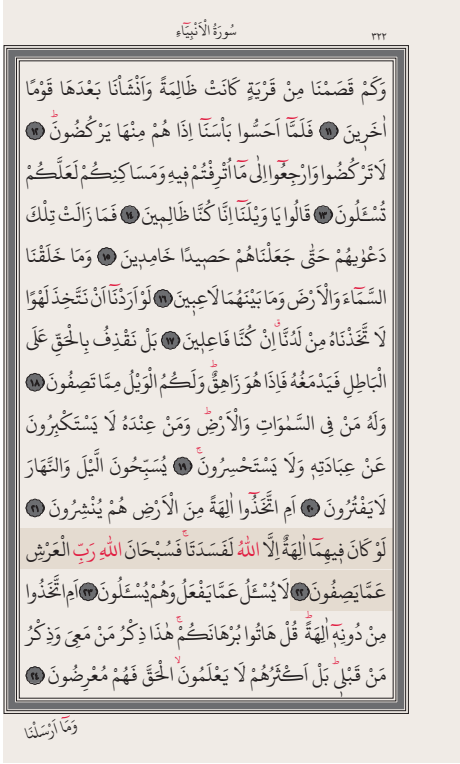 سُورَةُ الْاَنْبِيَٓاءِ
٣٢٢
وَكَمْ قَصَمْنَا مِنْ قَرْيَةٍ كَانَتْ ظَالِمَةً وَاَنْشَأْنَا بَعْدَهَا قَوْمًا
اٰخَر۪ينَ ١١ فَلَمَّٓا اَحَسُّوا بَأْسَنَٓا اِذَا هُمْ مِنْهَا يَرْكُضُونَۜ ١٢
لَا تَرْكُضُوا وَارْجِعُٓوا اِلٰى مَٓا اُتْرِفْتُمْ ف۪يهِ وَمَسَاكِنِكُمْ لَعَلَّكُمْ
تُسْـَٔلُونَ ١٣ قَالُوا يَا وَيْلَنَٓا اِنَّا كُنَّا ظَالِم۪ينَ ١٤ فَمَا زَالَتْ تِلْكَ
دَعْوٰيهُمْ حَتّٰى جَعَلْنَاهُمْ حَص۪يدًا خَامِد۪ينَ ١٥ وَمَا خَلَقْنَا
السَّمَٓاءَ وَالْاَرْضَ وَمَا بَيْنَهُمَا لَاعِب۪ينَ ١٦ لَوْ اَرَدْنَٓا اَنْ نَتَّخِذَ لَهْوًا
لَا تَّخَذْنَاهُ مِنْ لَدُنَّاۗ اِنْ كُنَّا فَاعِل۪ينَ ١٧ بَلْ نَقْذِفُ بِالْحَقِّ عَلَى
الْبَاطِلِ فَيَدْمَغُهُ فَاِذَا هُوَ زَاهِقٌۜ وَلَكُمُ الْوَيْلُ مِمَّا تَصِفُونَ ١٨
وَلَهُ مَنْ فِي السَّمٰوَاتِ وَالْاَرْضِۜ وَمَنْ عِنْدَهُ لَا يَسْتَكْبِرُونَ
عَنْ عِبَادَتِه۪ وَلَا يَسْتَحْسِرُونَۚ ١٩ يُسَبِّحُونَ الَّيْلَ وَالنَّهَارَ
لَا يَفْتُرُونَ ٢٠ اَمِ اتَّخَذُٓوا اٰلِهَةً مِنَ الْاَرْضِ هُمْ يُنْشِرُونَ ٢١
لَوْ كَانَ ف۪يهِمَٓا اٰلِهَةٌ اِلَّا اللّٰهُ لَفَسَدَتَاۚ فَسُبْحَانَ اللّٰهِ رَبِّ الْعَرْشِ
عَمَّا يَصِفُونَ ٢٢ لَا يُسْـَٔلُ عَمَّا يَفْعَلُ وَهُمْ يُسْـَٔلُونَ ٢٣ اَمِ اتَّخَذُوا
مِنْ دُونِه۪ٓ اٰلِهَةًۜ قُلْ هَاتُوا بُرْهَانَكُمْۚ هٰذَا ذِكْرُ مَنْ مَعِيَ وَذِكْرُ
مَنْ قَبْل۪يۜ بَلْ اَكْثَرُهُمْ لَا يَعْلَمُونَۙ الْحَقَّ فَهُمْ مُعْرِضُونَ ٢٤
وَمَٓا اَرْسَلْنَا